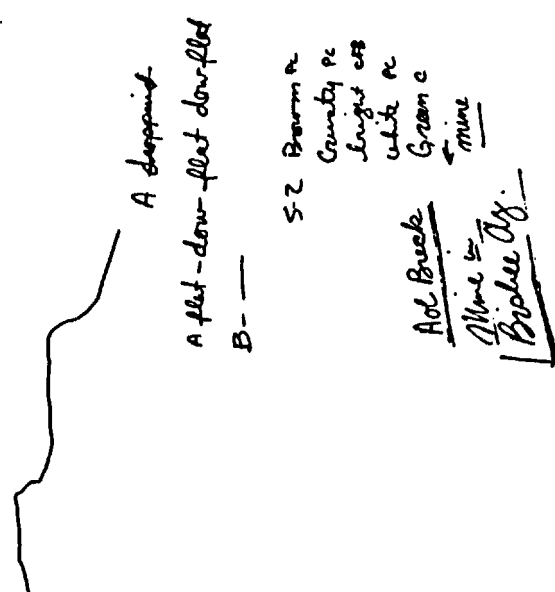 A dropping
A flat-dow-flat dow flat
B-
5-2 Brown Pc
County Pc
bright
white Pc
Green C
mine
Mine in
Bisbee Az.